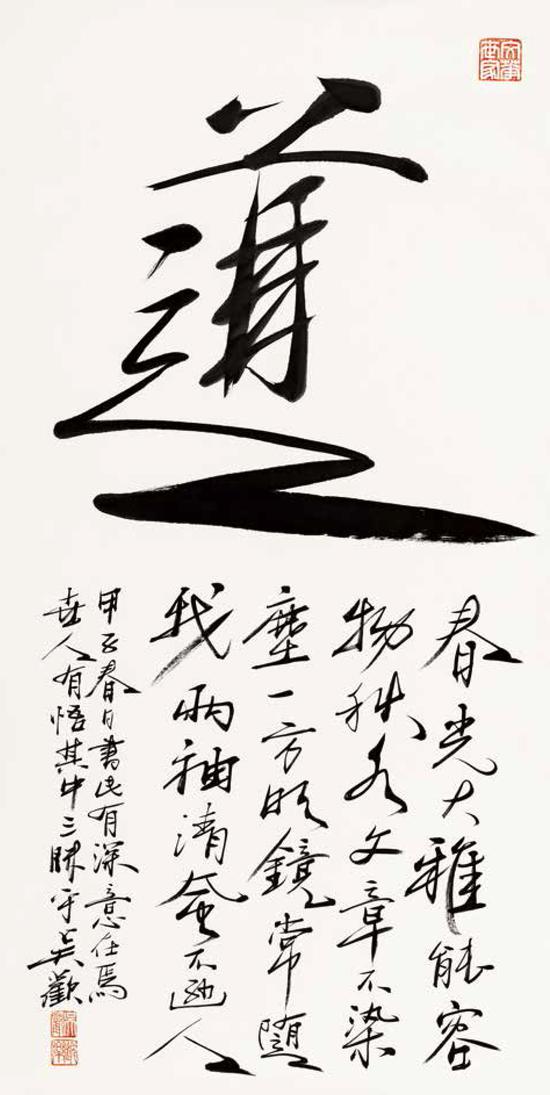 文華世家
道
春光大雅能容
物秋水文章不染
塵一方明鏡常隨
我兩袖清風不遜人
甲 春日書此有深意在焉
世人有悟其中三昧乎吳歡